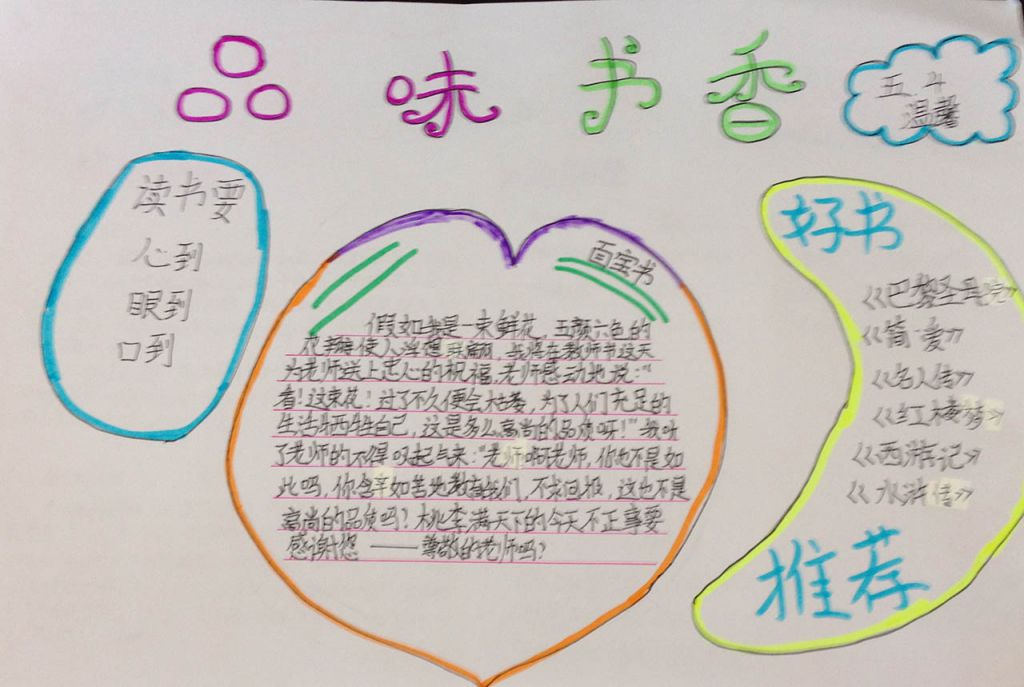 品味书香
五.4
温馨
读书要
心到
眼到
口到
面宝书
假如我是一束鲜花,五颜六色的
使人浮想联翩,我将在教师节这天
为老师送上忠心的祝福,老师感动地说:“
看!这束花!过了不久便会枯萎,为了人们充足的
生活牺牲自己,这是多么高尚的品质呀!”我听
了老师的不得叹起气来:“老师啊老师,你也不是如
此吗,你含辛如苦地教育我们,不求回报,这也不是
高尚的品质吗?桃李满天下的今天不正事要
感谢您——尊敬的老师吗?
好书
《巴黎圣母院》
《简·爱》
《名人传》
《红楼梦》
《西游记》
《水浒传》
推荐